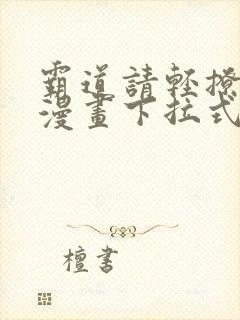 霸道請輕撩
漫畫下拉式
檀書